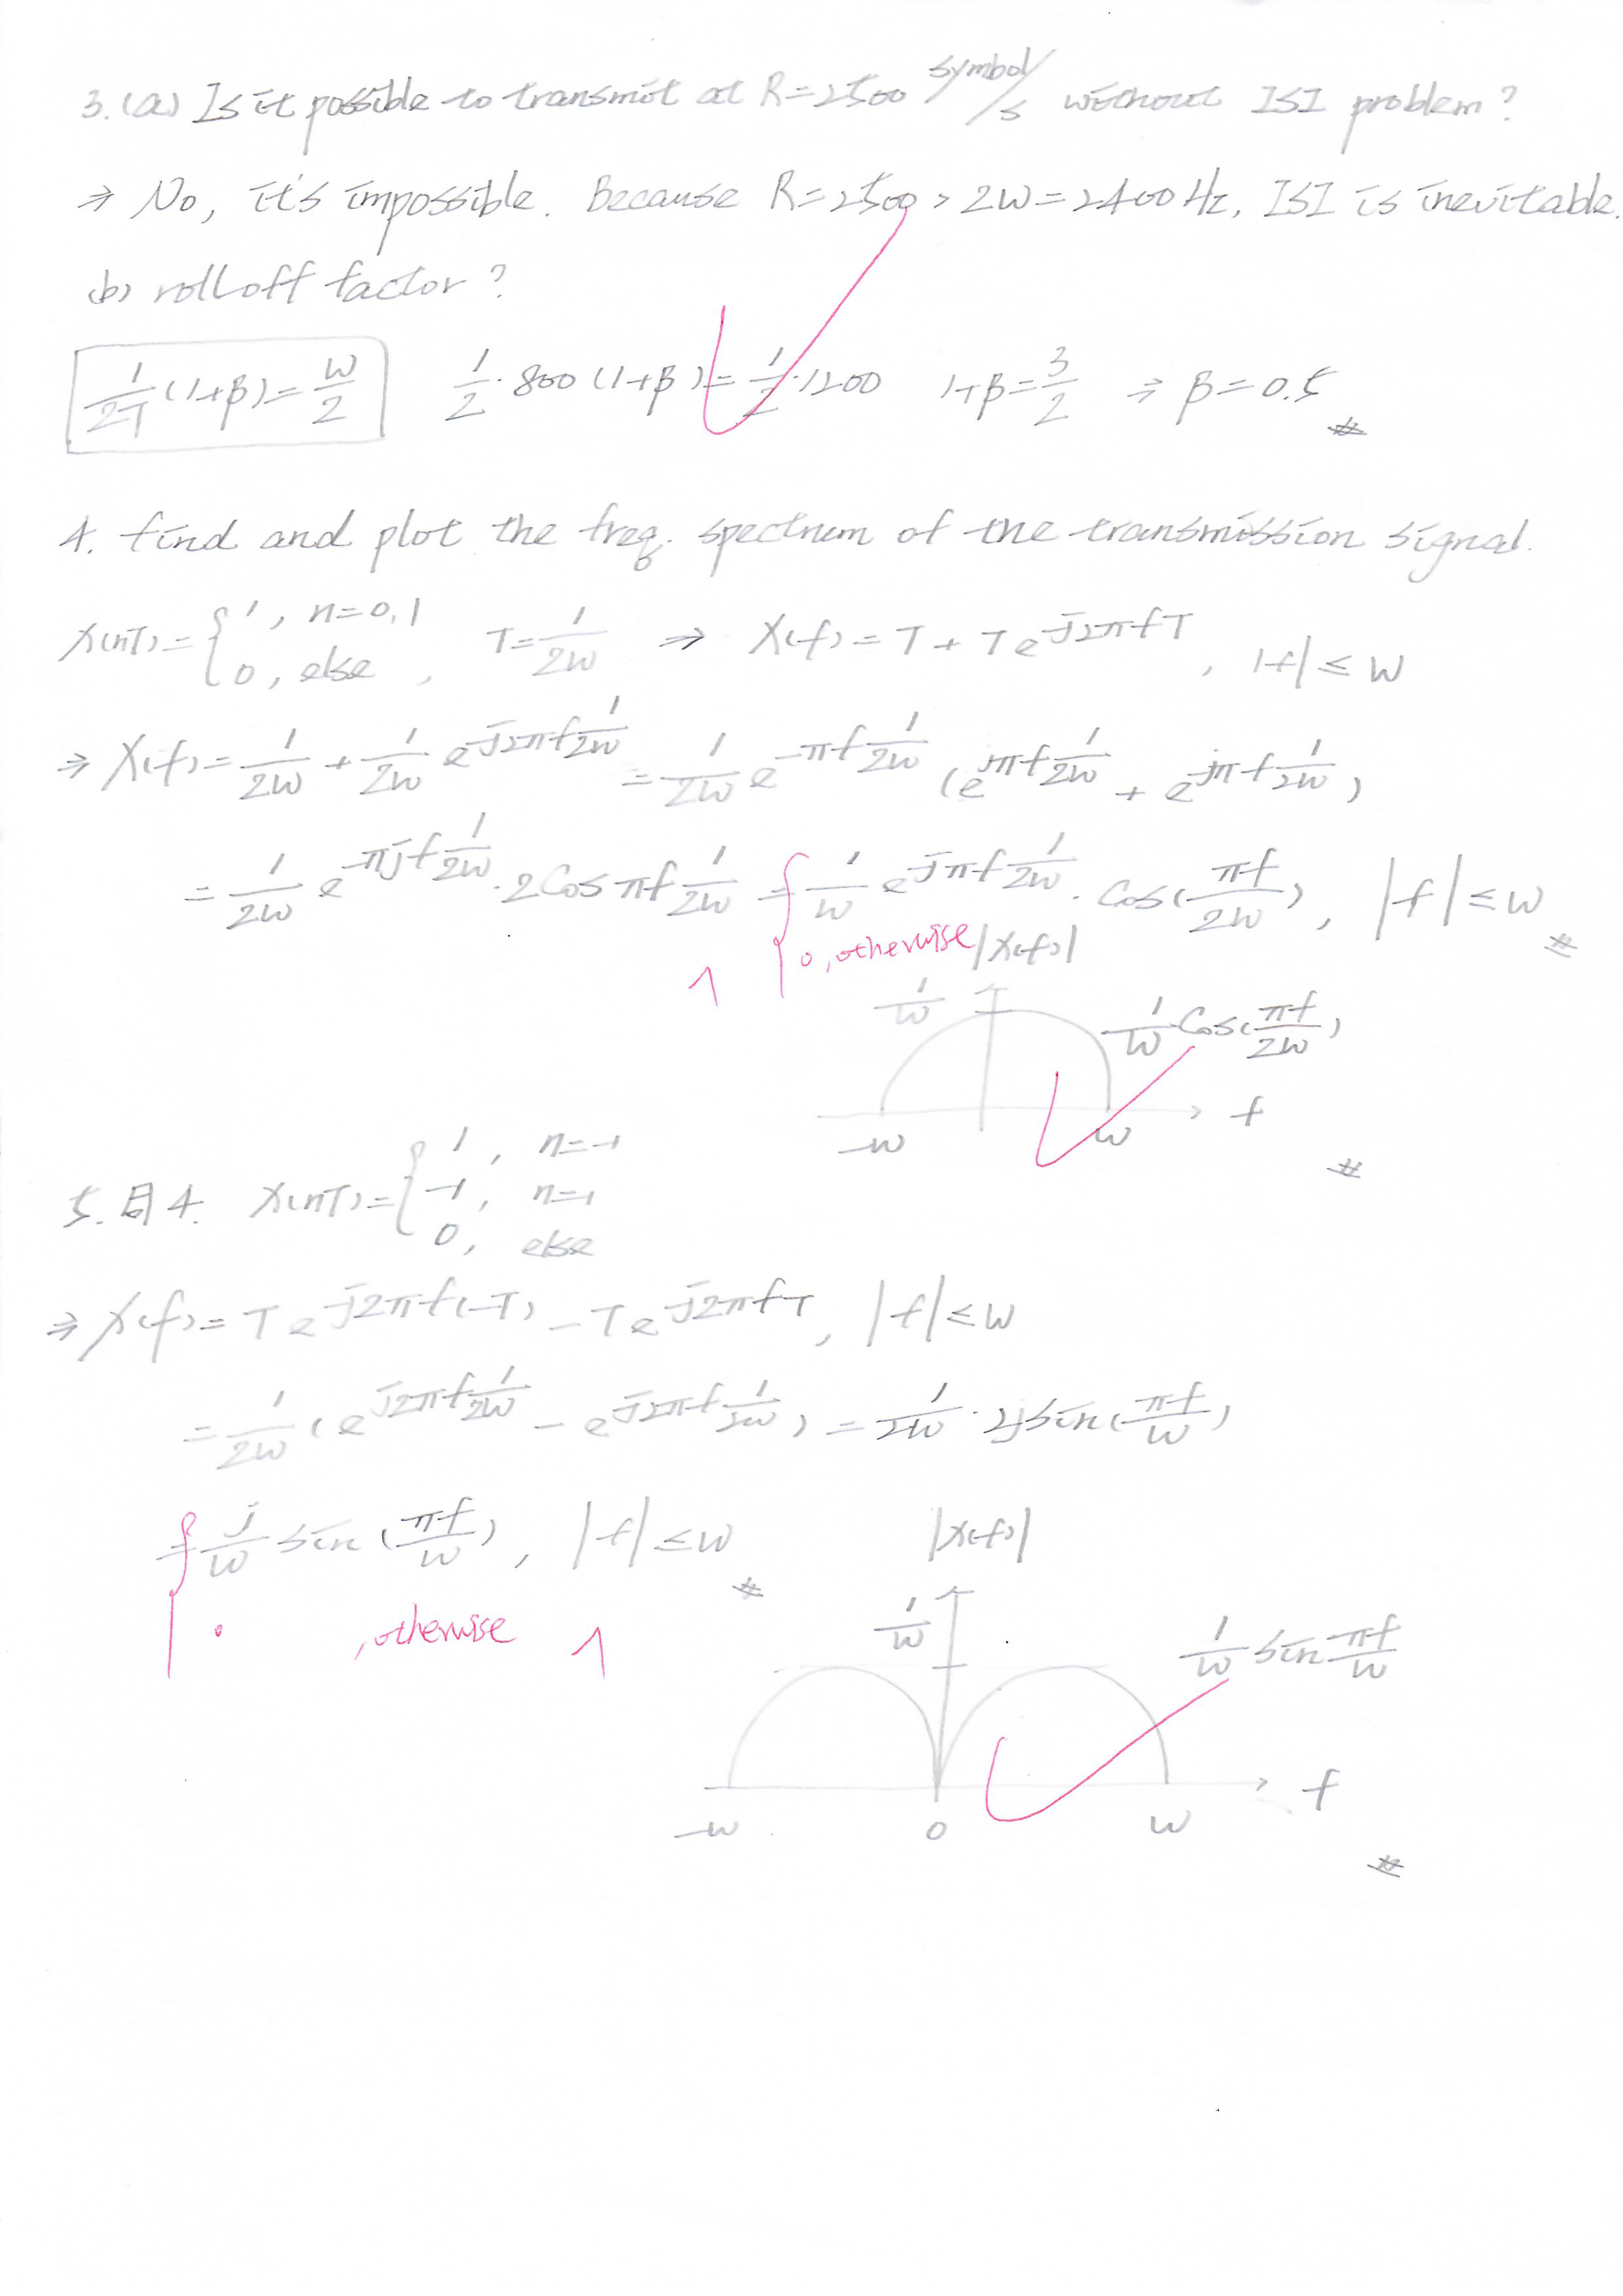 3. (a) Is it possible to transmit at R=2500 symbol/s without ISI problem?
⇒ No, it's impossible. Because R=2500 > 2W=2400 Hz, ISI is inevitable.
(b) roll off factor?
1/2T (1+β) = W/2   1/2 · 800 (1+β) = 1/2 · 1200   1+β = 3/2 ⇒ β = 0.5 #
4. find and plot the freq. spectrum of the transmission signal.
x(nT) = { 1, n=0,1
0, else , T = 1/2W ⇒ X(f) = T + T e^-j2πfT , |f| ≤ W
⇒ X(f) = 1/2W + 1/2W e^-j2πf 1/2W = 1/2W e^-πf 1/2W (e^jπf 1/2W + e^-jπf 1/2W)
= 1/2W e^-πjf 1/2W · 2 Cos πf 1/2W = { 1/W e^-jπf 1/2W · Cos(πf/2W), |f| ≤ W #
1 0, otherwise
|X(f)|
1/W
1/W Cos(πf/2W)
f
-W W
#
5. 同 4. x(nT) = { 1, n=-1
-1, n=1
0, else
⇒ X(f) = T e^-j2πf(-T) - T e^-j2πfT, |f| ≤ W
= 1/2W (e^j2πf 1/2W - e^-j2πf 1/2W) = 1/2W · 2j sin(πf/W)
= { j/W sin(πf/W), |f| ≤ W #
0 , otherwise 1
|X(f)|
1/W
1/W sin πf/W
f
-W 0 W
#